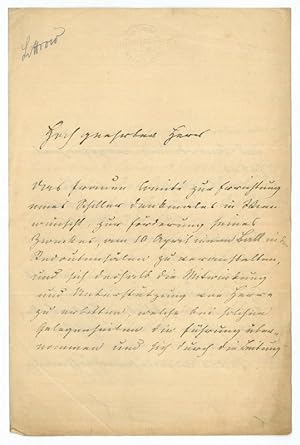 Littrow
Hoch geehrter Herr
Das Frauen Comité zur Errichtung
eines Schiller Denkmales in Wien
wünscht zur Förderung seines
Zweckes am 10 April einen Ball in den
Redoutensälen zu veranstalten,
und sich deshalb die Mitwirkung
und Unterstützung von Herrn
zu erbitten, welche bei solchen
Gelegenheiten die Führung über-
nommen und sich durch die Leitung